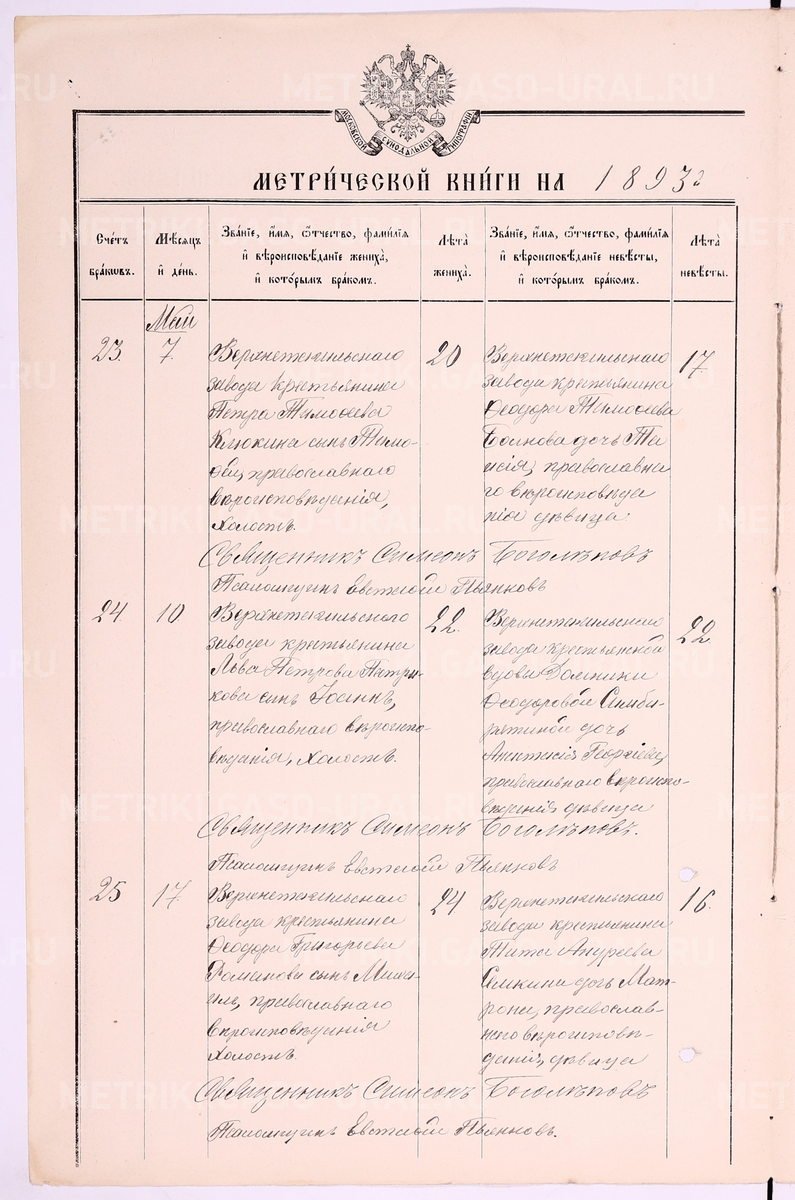 МОСКОВСКОЙ СѴНОДАЛЬНОЙ ТИПОГРАФІИ
МЕТРИ́ЧЕСКОЙ КНИ́ГИ НА 1893 г
Счетъ бракѡвъ.
Мѣсяцъ и день.
Званіе, имя, ѻтчество, фамилія и вѣроисповѣданіе жениха, и которымъ бракомъ.
Лѣта жениха.
Званіе, имя, ѻтчество, фамилія и вѣроисповѣданіе невѣсты, и которымъ бракомъ.
Лѣта невѣсты.
Май
23
7.
Верхнетагильскаго
завода крестьянина
Петра Тимоѳеева
Клюкина сынъ Тимо-
ѳей, православнаго
вѣроисповѣданія,
холостъ.
20
Верхнетагильскаго
завода крестьянина
Ѳеодора Тимоѳеева
дочь Та
исія, православна
го вѣроисповѣда
нія дѣвица.
17.
Священникъ Симеонъ Боголѣповъ
Псаломщикъ Евстаѳій Пьянковъ
24
10
Верхнетагильскаго
завода крестьянина
Льва Петрова Патри-
кова сынъ Іоаннъ,
православнаго вѣроиспо-
вѣданія, холостъ.
22.
Верхнетагильскаго
завода крестьянской
вдовы Домники
Ѳеодоровой
дочь
Георгіева,
православнаго вѣроиспо-
вѣданія, дѣвица
22
Священникъ Симеонъ Боголѣповъ.
Псаломщикъ Евстаѳій Пьянковъ
25
17
Верхнетагильскаго
завода крестьянина
Ѳеодора Григорьева
Романова сынъ Миха-
илъ, православнаго
вѣроисповѣданія
холостъ.
24
Верхнетагильскаго
завода крестьянина
Тита Андреева
дочь Мат-
рона, православ-
наго вѣроисповѣ-
данія, дѣвица
16.
Священникъ Симеонъ Боголѣповъ
Псаломщикъ Евстаѳій Пьянковъ.
METRIKI.GASO-URAL.RU